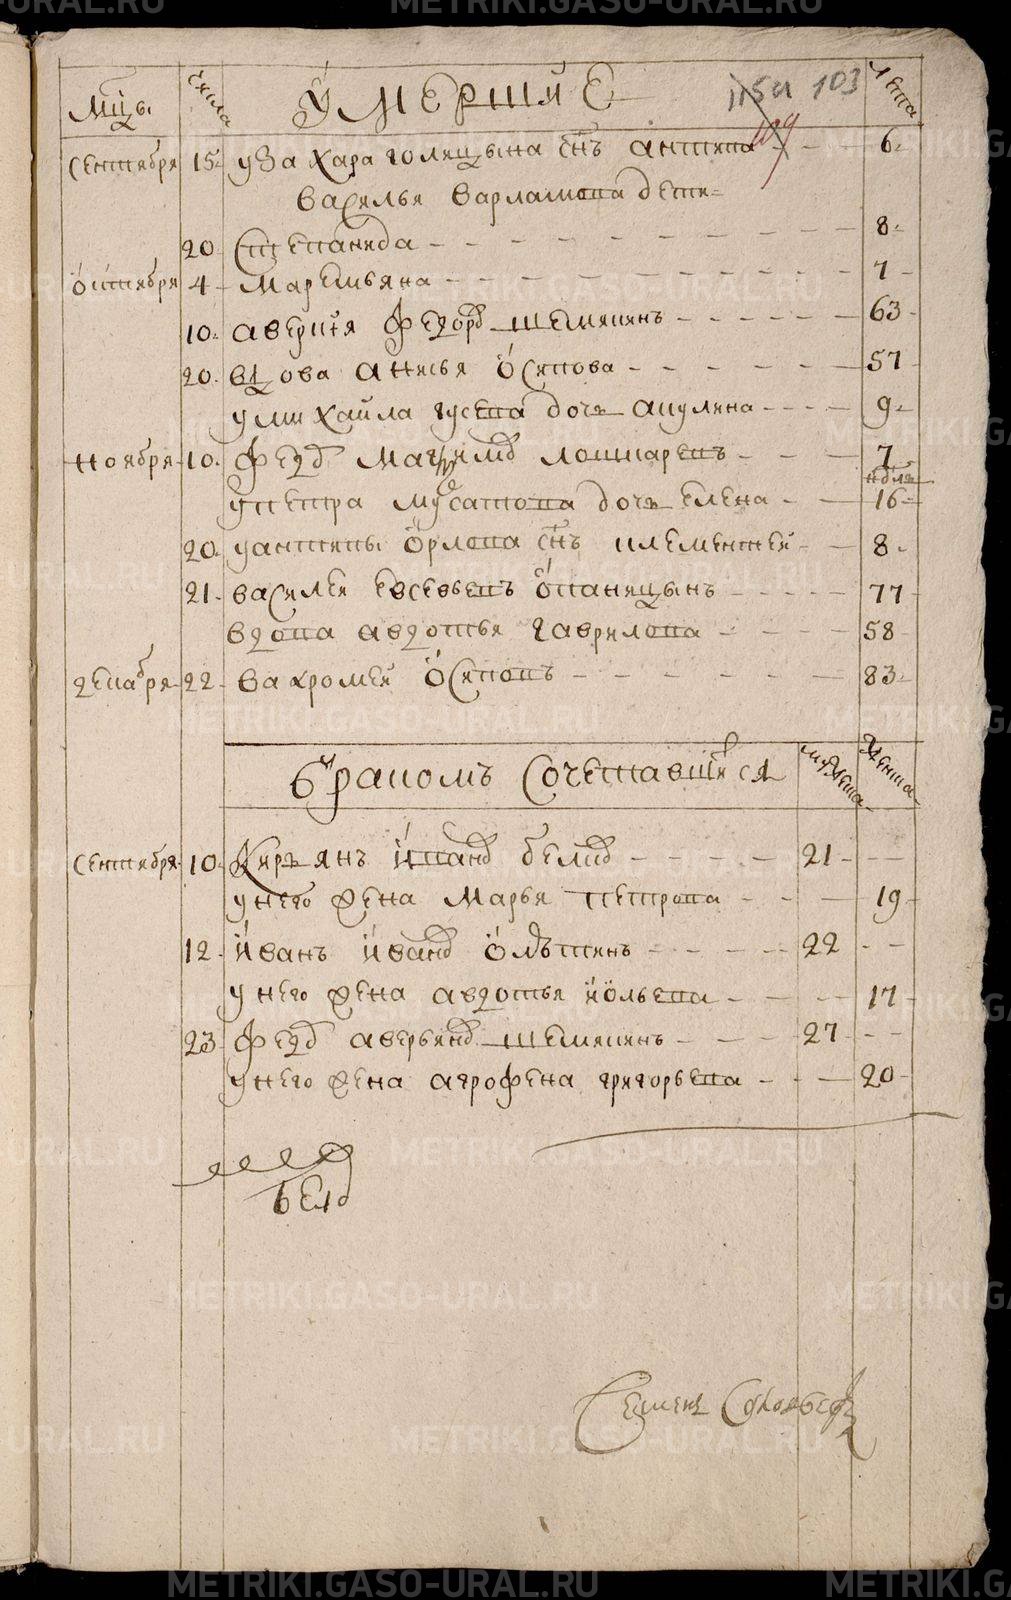 METRIKI.GASO-URAL.RU
мцы числа Умершие 115 и 103 лета
109
сентября 15 у Захара голицына снъ антипа 6
василья варламова дети
20 степанида 8
октября 4 маремьяна 7
10 аверкия федоров шемякинъ 63
20 вдова анисья осипова 57
у михайла гусева дочь акулина 9
ноября 10 федор лошкаревъ 7
ндль
у петра мусатова дочь елена 16
20 у антипы орлова снъ климентей 8
21 василей евсевьевъ опаницынъ 77
вдова авдотья гаврилова 58
декабря 22 вахромей осиповъ 83
браком сочетавшиеся мужеска женска
сентября 10 Кирьянъ иванов белов 21
у него жена марья петрова 19
12 иванъ иванов 22
у него жена авдотья 17
23 федор аверьянов шемякинъ 27
у него жена агрофена григорьева 20
Семен